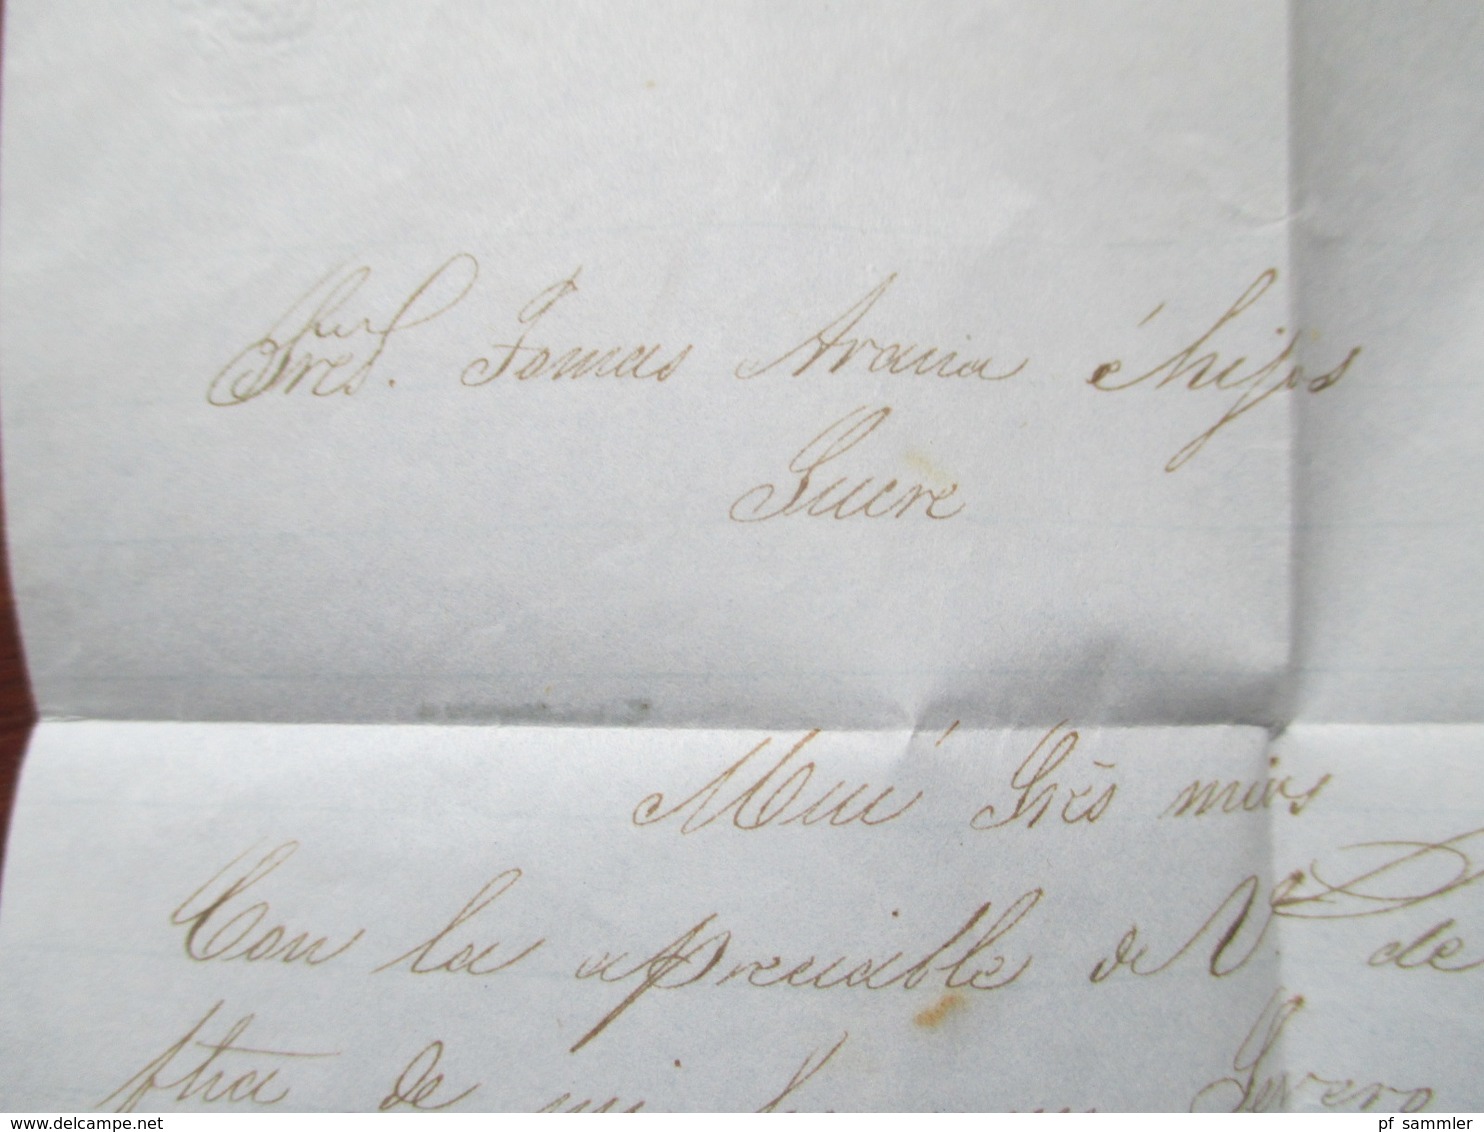 Sres. Tomas Arana é hijos
Sucre
Mui Sres mios
Con la apreciable de V. de
ftha de mi Severo
www.delcampe.net
pf_sammler